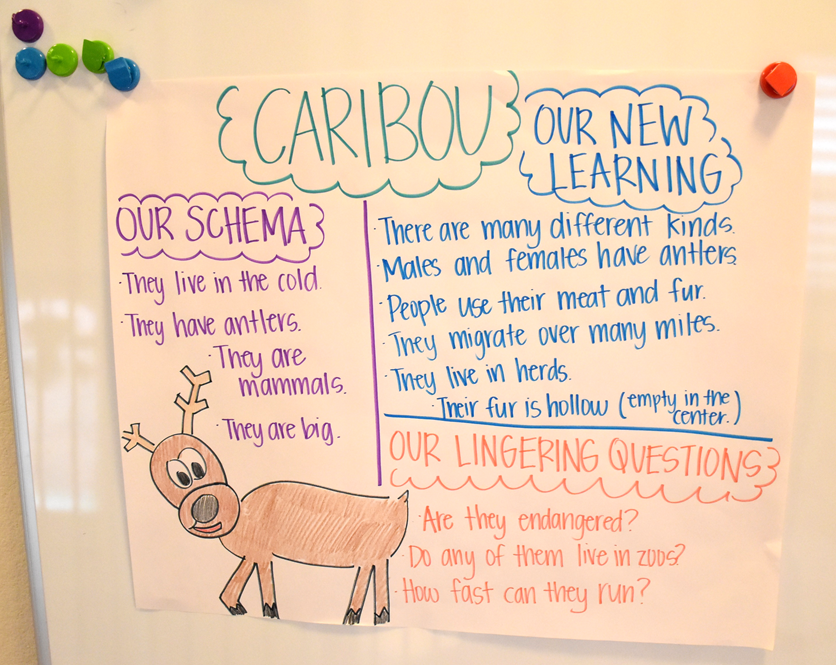 CARIBOU
OUR SCHEMA
·They live in the cold.
·They have antlers.
·They are
mammals.
·They are big.
OUR NEW
LEARNING
·There are many different kinds.
·Males and females have antlers.
·People use their meat and fur.
·They migrate over many miles.
·They live in herds.
·Their fur is hollow (empty in the
center.)
OUR LINGERING QUESTIONS
·Are they endangered?
·Do any of them live in zoos?
·How fast can they run?